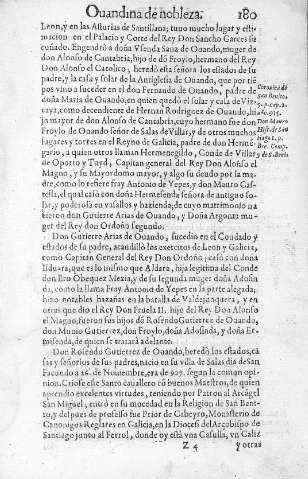 Ouandina de nobleza. 180
Leon, y en las Asturias de Santillana; tuuo mucho lugar y esti-
macion en el Palacio y Corte del Rey Don Sancho Garces su
cuñado. Engendrò a doña Vsenda Sanz de Ouando, muger de
don Alonso de Cantabria, hijo de dõ Froylo, hermano del Rey
Don Alonso el Catolico, heredò esta señora los estados de su
padre, y la casa y solar de la Antiglesia de Ouando, que por tie
pos vino a suceder en el don Fernando de Ouando, padre de
doña Maria de Ouando, en quien quedò el solar y casa de Viz-
caya, como decendiente de Hernan Rodriguez de Ouando, hi-
jo mayor de don Alonso de Cantabria, cuyo hermano fue don
Froylo de Ouando señor de Salas de Villar, y de otros muchos
lugares y torres en el Reyno de Galicia, padre de don Herme-
gildo, a quien otros llaman Hermenegildo, Conde de Villar
de Oporto y Tuyd, Capitan general del Rey Don Alonso el
Magno, y su Mayordomo mayor, y algo su deudo por la ma-
dre, como lo refiere fray Antonio de Yepes, y don Mauro Cas-
tella, el qual casò con doña Hermesenda señora de antiguo so-
lar, y poderosa en vasallos y hazienda; de cuyo matrimonio na
cieron don Gutierre Arias de Ouando, y Doña Argonta mu-
ger del Rey don Ordoño segundo.
Don Gutierre Arias de Ouando, sucediò en el Condado y
estados de su padre, acaudillò los exercitos de Leon y Galicia,
como Capitan General del Rey Don Ordoño; casò con doña
Ilduara, que es lo mismo que Aldara, hija legitima del Conde
don Ero
como la llama Fray Antonio de Yepes en la parte alegada,
hizo notables hazañas en la batalla de Valdejunquera, y en
otras que dio el Rey Don Fruela II. hijo del Rey Don Alonso
el Magno, fueron sus hijos dõ Rosendo Gutierrez de Ouando,
don Munio Gutierrez, don Froylo, doña Adosinda, y doña Er-
mesenda, de quien se tratarà adelante.
Don Rosendo Gutierrez de Ouando, heredò los estados, ca
sas y señorios de sus padres, naciò en su villa de Salas dia de San
Facundo a 26. de Nouiembre, era de 907. segun la comun opi-
nion. Criose este Santo cauallero cõ buenos Maestros, de quien
aprendio excelentes virtudes, teniendo por Patron al Arcãgel
San Miguel, entrò en su mocedad en la Religion de San Beni-
to, y despues de professo fue Prior de Monasterio de
Canonigos Reglares en Galicia, en la Diocesi del Arçobispo de
Santiago junto al Ferrol, donde oy està vna Casulla, vn Caliz
Z 4 y otras